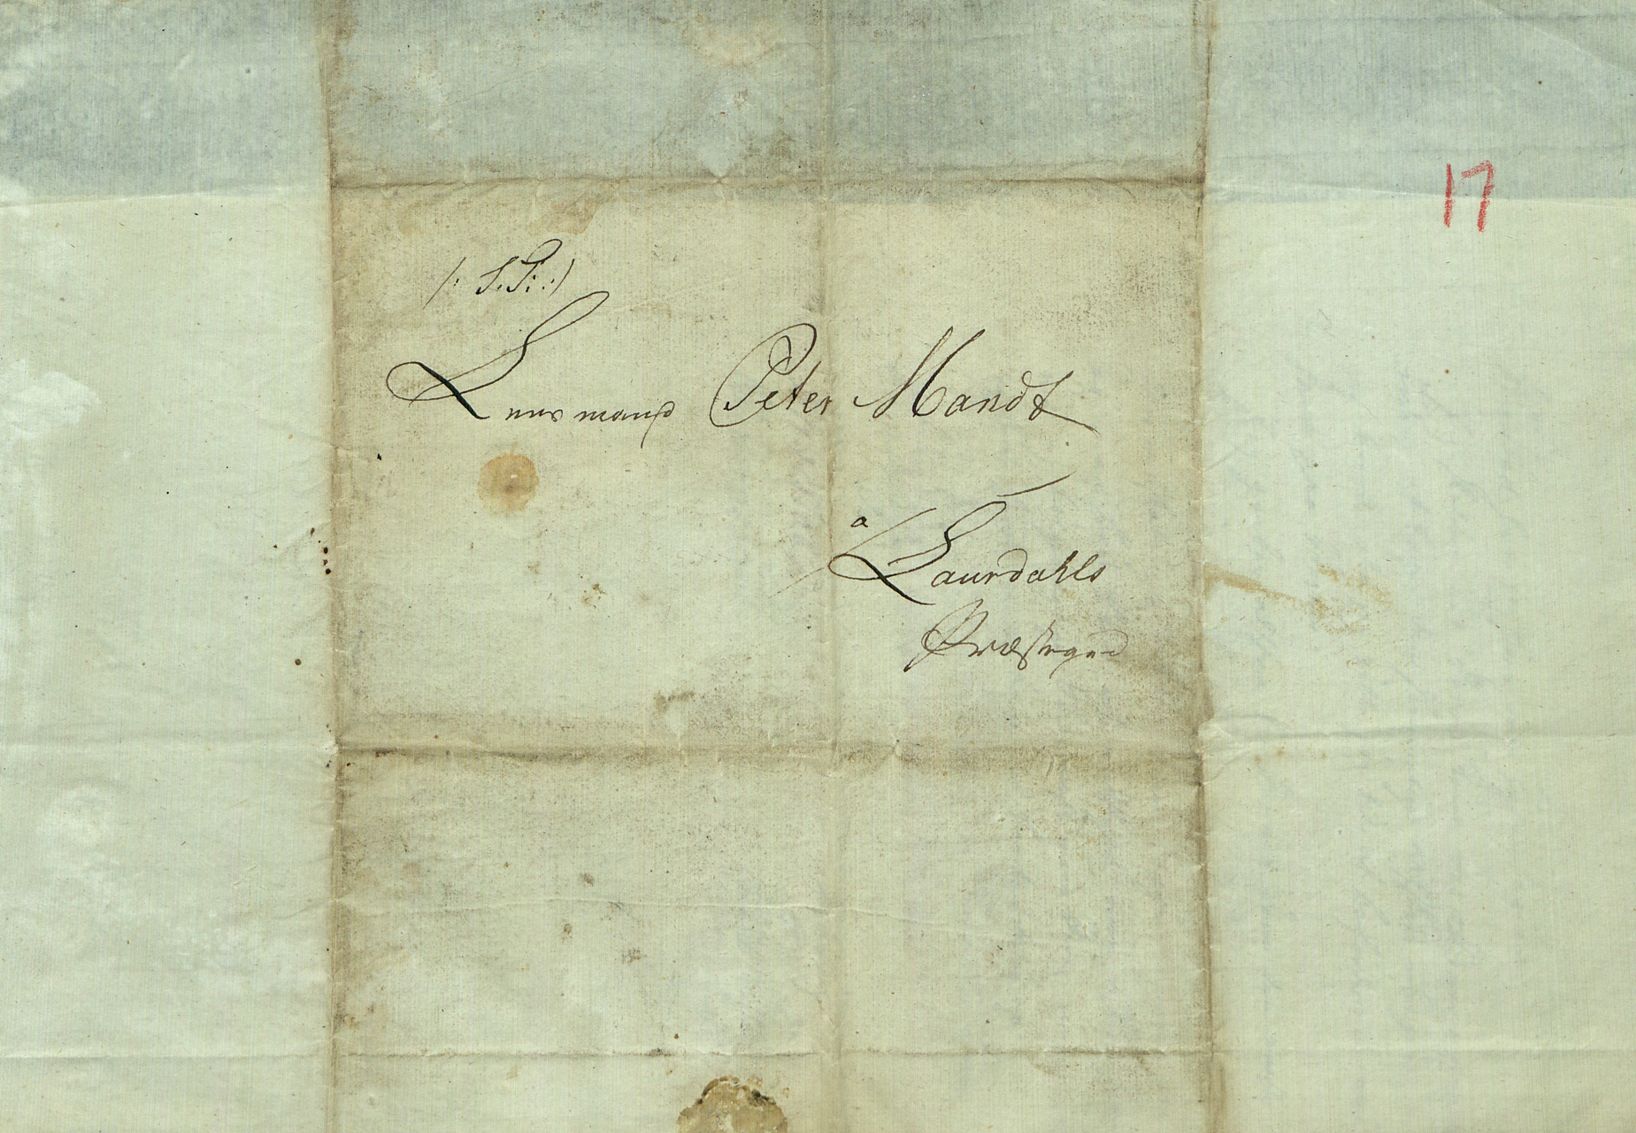 17
/: S.T. :/
Lensmand Peter Mandt
a
Laurdahls
Præstegield